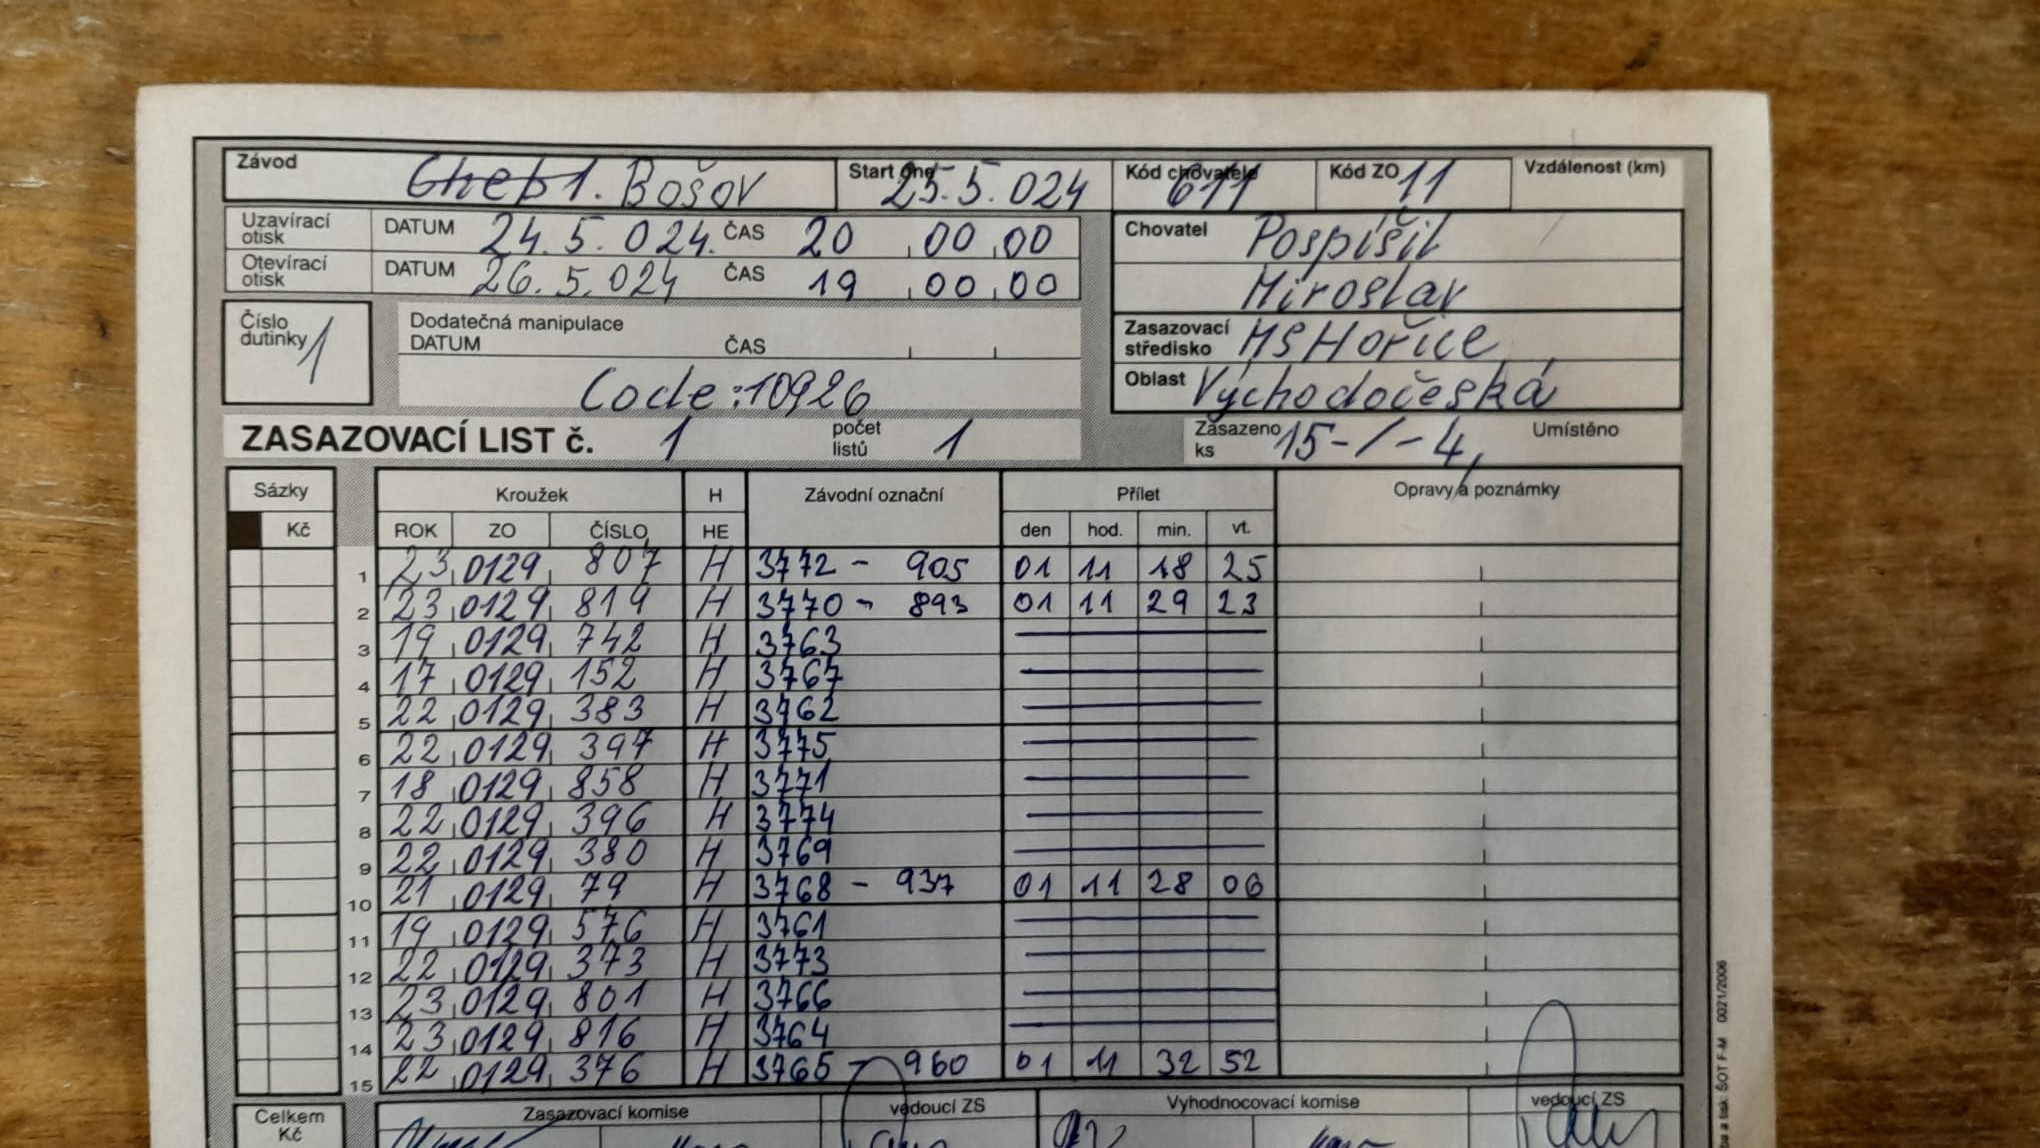 Závod Cheb 1. Bošov Start dne 25.5.024 Kód chovatele 611 Kód ZO 11 Vzdálenost (km)
Uzavírací otisk DATUM 24.5.024. ČAS 20 00 00 Chovatel Pospíšil
Otevírací otisk DATUM 26.5.024 ČAS 19 00 00 Miroslav
Číslo dutinky 1 Dodatečná manipulace
DATUM ČAS Zasazovací středisko MS Hořice
Code:10926 Oblast Východočeská
ZASAZOVACÍ LIST č. 1 počet listů 1 Zasazeno ks 15-/-4, Umístěno
Sázky Kroužek H Závodní označní Přílet Opravy a poznámky
Kč ROK ZO ČÍSLO HE den hod. min. vt.
1 23 0129 807 H 3772 - 905 01 11 18 25
2 23 0129 819 H 3770 - 893 01 11 29 23
3 19 0129 742 H 3763
4 17 0129 152 H 3767
5 22 0129 383 H 3762
6 22 0129 397 H 3775
7 18 0129 858 H 3771
8 22 0129 396 H 3774
9 22 0129 380 H 3769
10 21 0129 79 H 3768 - 937 01 11 28 06
11 19 0129 576 H 3761
12 22 0129 373 H 3773
13 23 0129 801 H 3766
14 23 0129 816 H 3764
15 22 0129 376 H 3765 - 960 01 11 32 52
Celkem Kč Zasazovací komise vedoucí ZS Vyhodnocovací komise vedoucí ZS
ba a tisk: ŠOT F-M 0021/2006